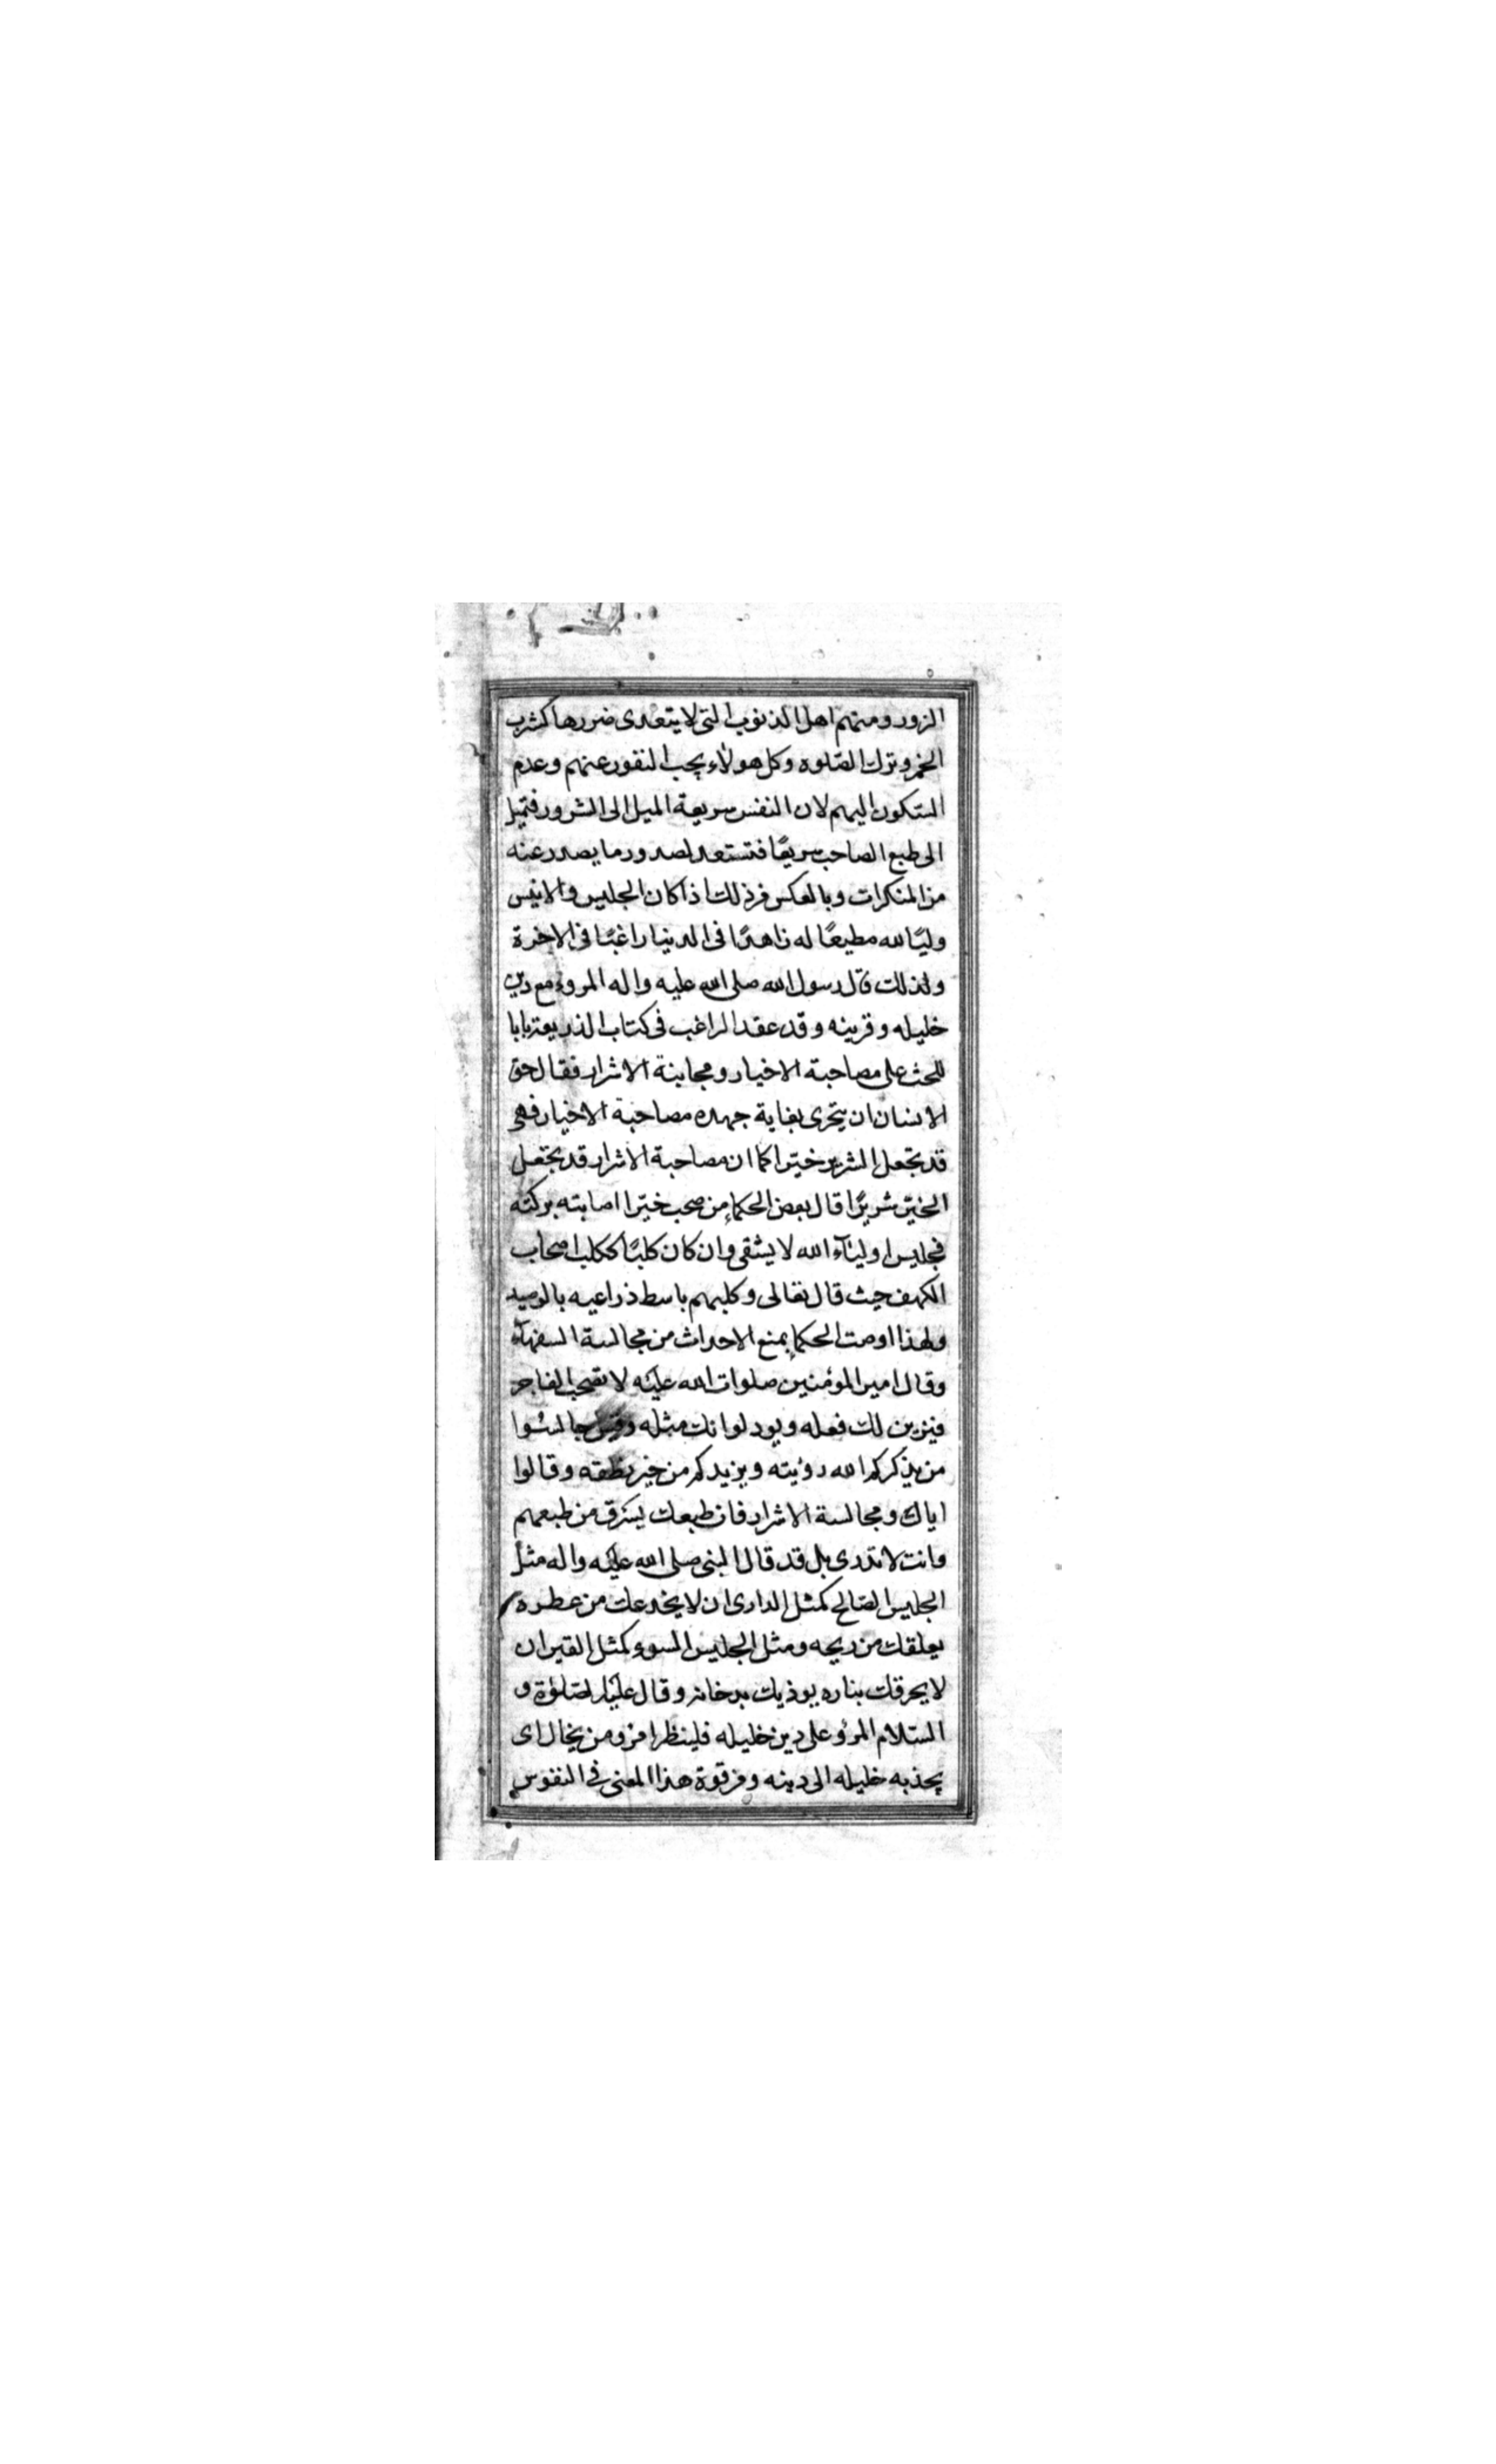 الزور ومنهم اهل الذنوب التى لا يتعدى ضررها كشرب
الخمر وترك الصّلوه وكل هولاء يجب النفور عنهم وعدم
السّكون اليهم لان النفس سريعة الميل الى الشرور فتميل
الى طبع الصاحب سريعًا فتستعد لصدور ما يصدر عنه
من المنكرات وبالعكس من ذلك اذا كان الجليس والانيس
وليًا لله مطيعًا له زاهدًا فى الدنيا راغبًا فى الاخرة
ولذلك قال رسول الله صلى الله عليه واله المروء مع دين
خليله وقرينه وقد عقد الراغب فى كتاب الذريعة بابا
للحث على مصاحبة الاخيار ومجانبة الاشرار فقال حق
الانسان ان يتحرى بغاية جهده مصاحبة الاخيار فهى
قد تجعل الشرير خيّرا كما ان مصاحبة الاشرار قد تجعل
الخيّر شريرًا قال بعض الحكماء من صحب خيّرا اصابته بركته
فجليس اوليآء الله لا يشقى وان كان كلبًا ككلب اصحاب
الكهف حيث قال تعالى وكلبهم باسط ذراعيه بالوصيد
ولهذا اوصت الحكماء بمنع الاحداث من مجالسة السفهآء
وقال امير المؤمنين صلوات الله عليه لا تصحب الفاجر
فيزين لك فعله ويود لو انك مثله جالسوا
من يذكركم الله رؤيته ويزيدكم من خير نطقه وقالوا
اياك ومجالسة الاشرار فان طبعك يسرق من طبعهم
وانت لا تدرى بل قد قال النبى صلى الله عليه واله مثل
الجليس الصّالح كمثل الدارى ان لا يخدعك من عطره
يعلقك من ريحه ومثل الجليس السوء كمثل القير ان
لا يحرقك بناره يوذيك بدخانه وقال عليه الصّلوة و
السّلام المرؤ على دين خليله فلينظر امرؤ من يخال اى
يجذبه خليله الى دينه ومن قوة هذا المعنى فى النفوس